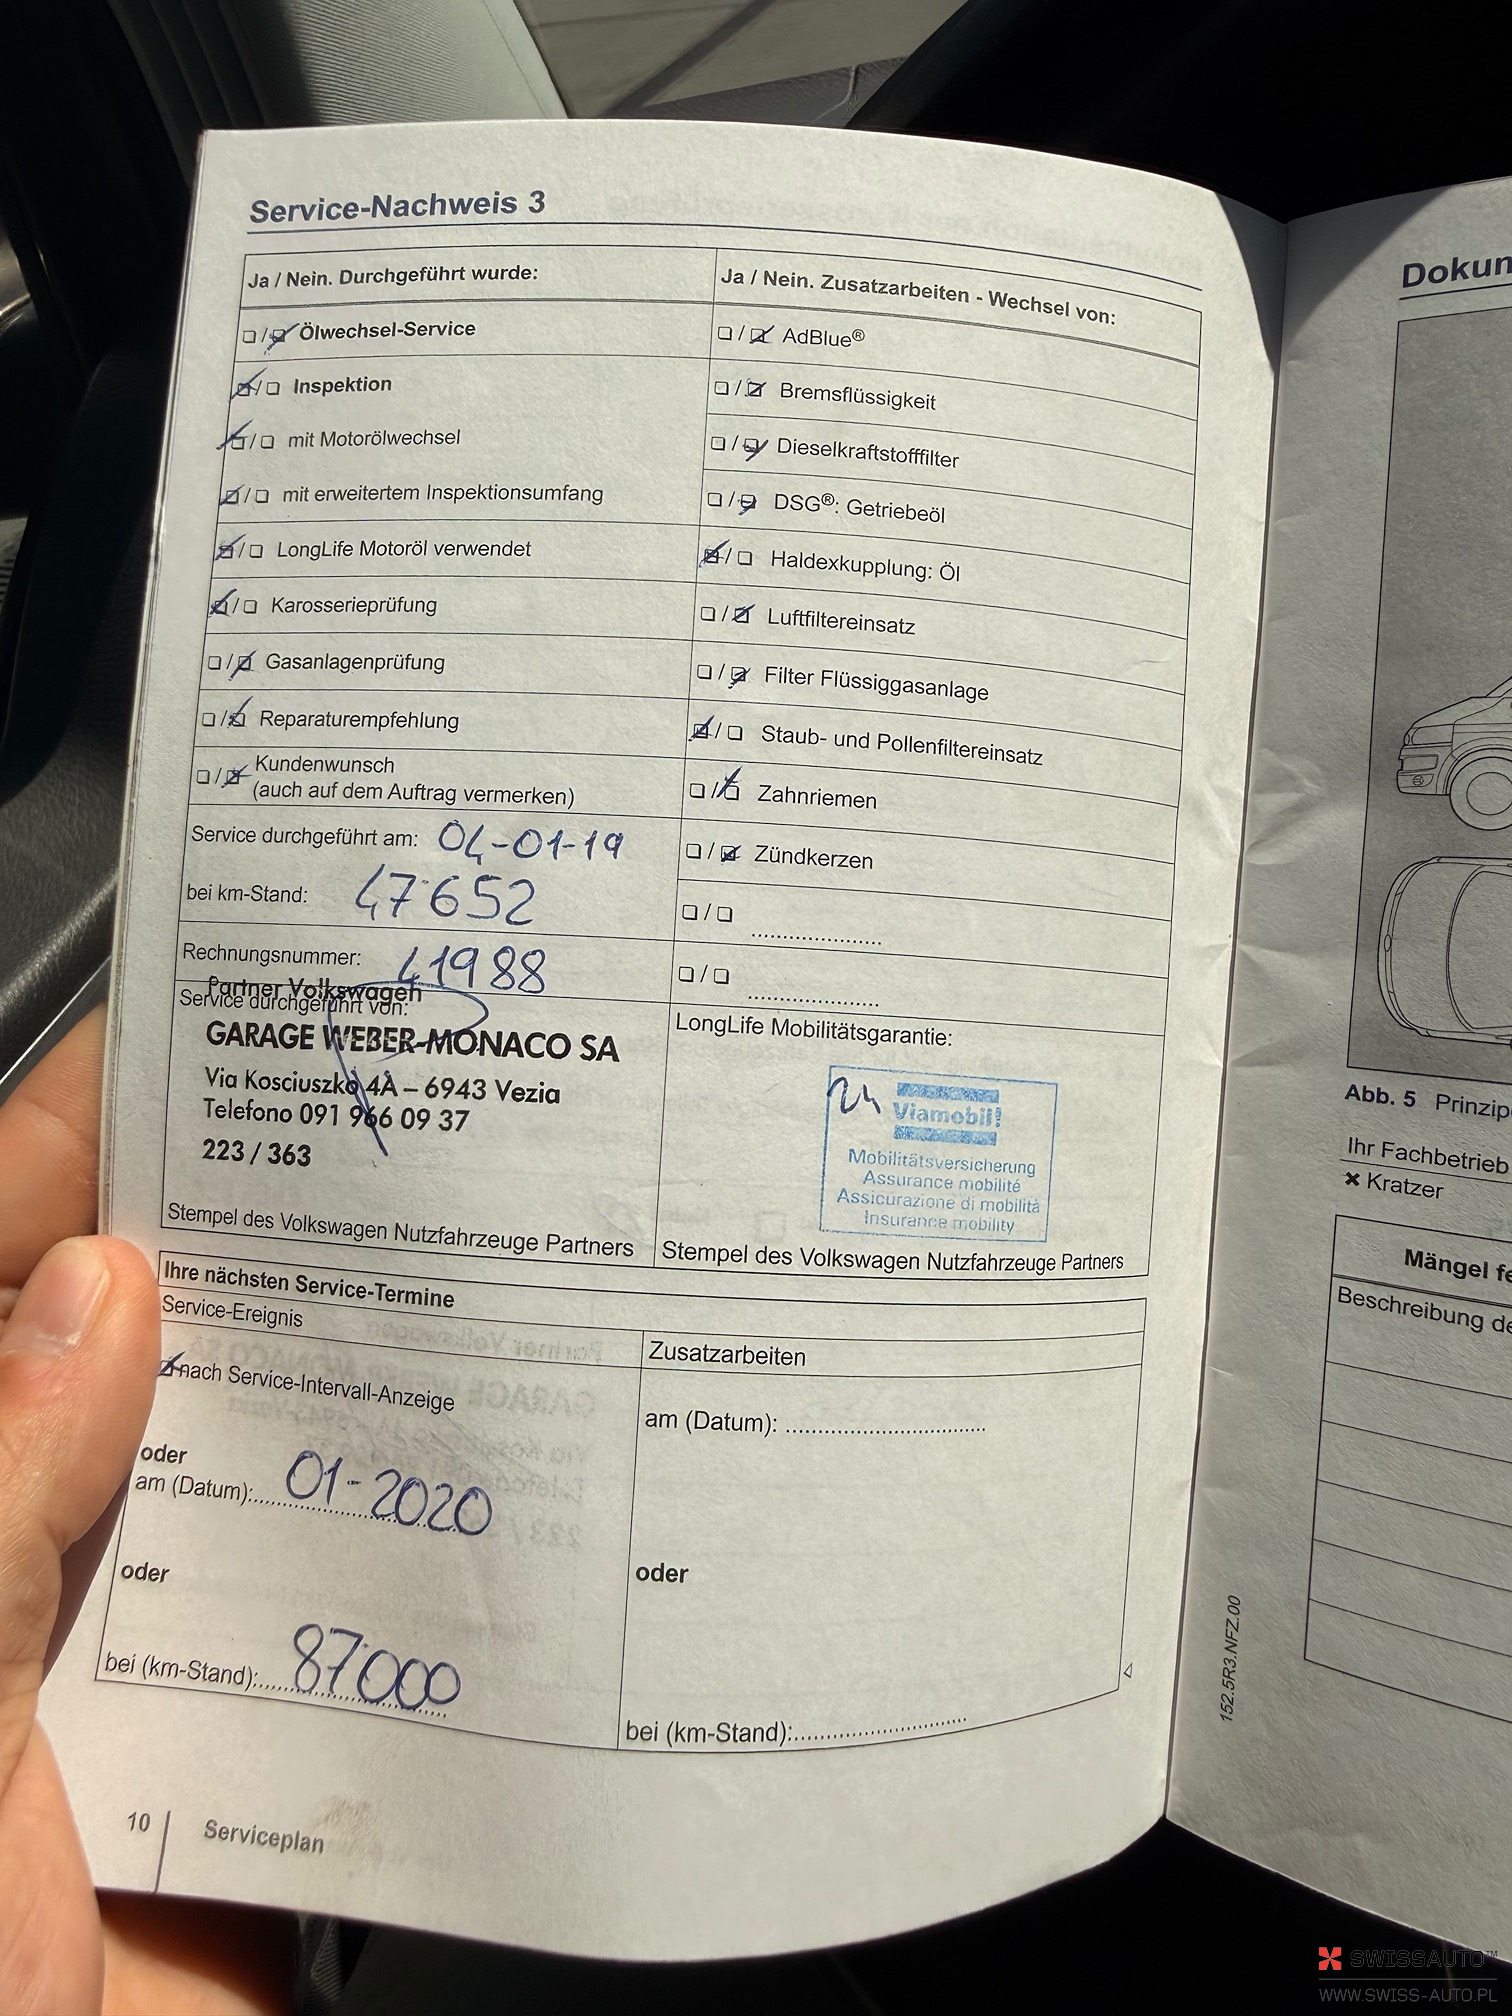 Service-Nachweis 3
Ja / Nein. Durchgeführt wurde:
❏ / ❏ Ölwechsel-Service
❏ / ❏ Inspektion
❏ / ❏ mit Motorölwechsel
❏ / ❏ mit erweitertem Inspektionsumfang
❏ / ❏ LongLife Motoröl verwendet
❏ / ❏ Karosserieprüfung
❏ / ❏ Gasanlagenprüfung
❏ / ❏ Reparaturempfehlung
❏ / ❏ Kundenwunsch
(auch auf dem Auftrag vermerken)
Service durchgeführt am: 04-01-19
bei km-Stand: 47'652
Rechnungsnummer: 41988
Partner Volkswagen
Service durchgeführt von:
GARAGE WEBER-MONACO SA
Via Kosciuszko 4A – 6943 Vezia
Telefono 091 966 09 37
223 / 363
Stempel des Volkswagen Nutzfahrzeuge Partners
Ja / Nein. Zusatzarbeiten - Wechsel von:
❏ / ❏ AdBlue®
❏ / ❏ Bremsflüssigkeit
❏ / ❏ Dieselkraftstofffilter
❏ / ❏ DSG®: Getriebeöl
❏ / ❏ Haldexkupplung: Öl
❏ / ❏ Luftfiltereinsatz
❏ / ❏ Filter Flüssiggasanlage
❏ / ❏ Staub- und Pollenfiltereinsatz
❏ / ❏ Zahnriemen
❏ / ❏ Zündkerzen
❏ / ❏ ......................
❏ / ❏ ......................
LongLife Mobilitätsgarantie:
24
Viamobil!
Mobilitätsversicherung
Assurance mobilité
Assicurazione di mobilità
Insurance mobility
Stempel des Volkswagen Nutzfahrzeuge Partners
Ihre nächsten Service-Termine
Service-Ereignis
❏ nach Service-Intervall-Anzeige
oder
am (Datum): 01-2020
oder
bei (km-Stand): 87'000
Zusatzarbeiten
am (Datum): ..............................
oder
bei (km-Stand): ..........................
10
Serviceplan
Dokun
Abb. 5 Prinzip
Ihr Fachbetrieb
✖ Kratzer
Mängel fe
Beschreibung de
152.5R3.NFZ.00
SWISSAUTO™
WWW.SWISS-AUTO.PL